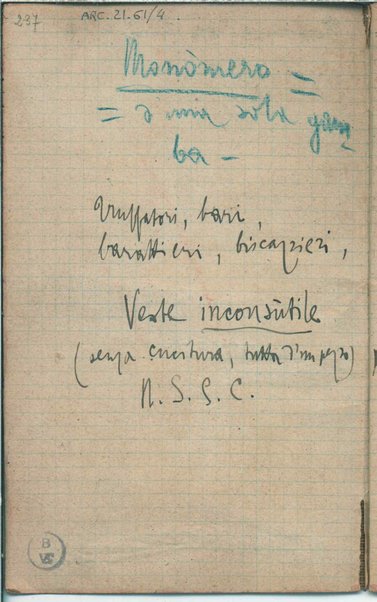 237
ARC. 21. 61/4.
Monòmero =
= d'una sola gam
ba -
Truffatori, bari,
barattieri, biscazieri,
Veste inconsùtile
(senza cucitura, tutta d'un pezzo)
N. S. G. C.
B
VE